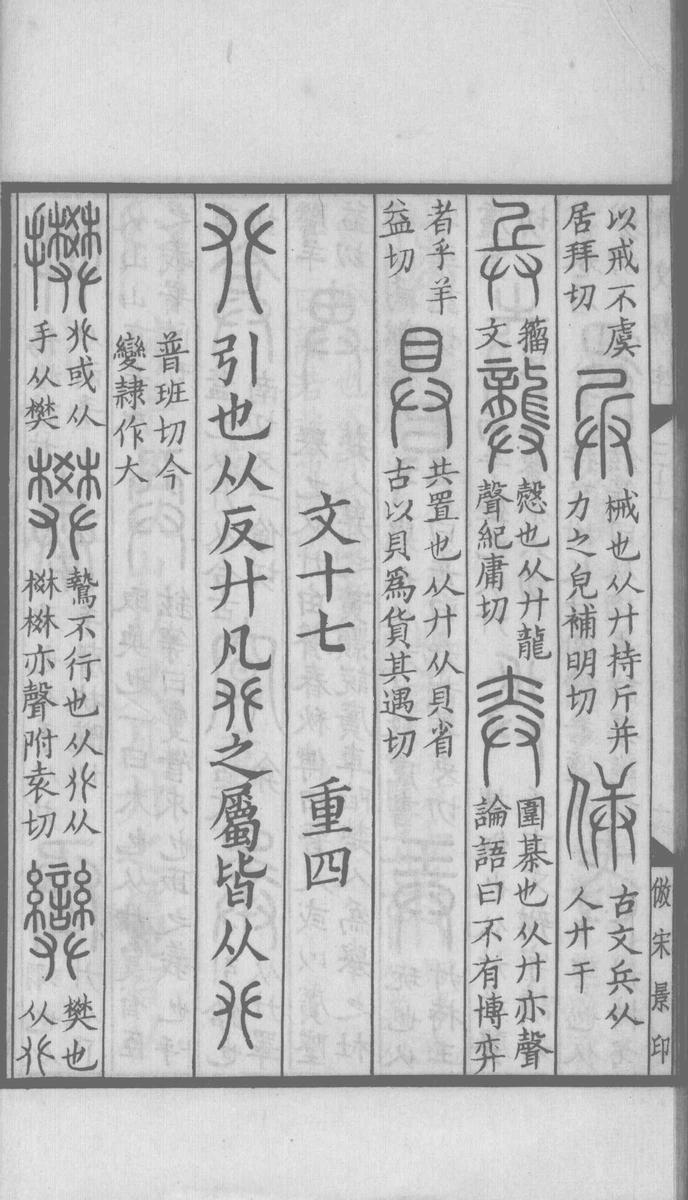 倣宋景印
以戒不虞
居拜切
兵
械也从廾持斤并
力之皃補明切
𠈮
古文兵从
人廾干
兵
籀
文
龏
愨也从廾龍
聲紀庸切
弈
圍棊也从廾亦聲
論語曰不有博弈
者乎羊
益切
具
共置也从廾从貝省
古以貝爲貨其遇切
文十七　重四
𠬜引也从反廾凡𠬜之屬皆从𠬜
普班切今
變隷作大
攀
𠬜或从
手从樊
樊
鷙不行也从𠬜从
棥棥亦聲附袁切
奱
樊也
从𠬜